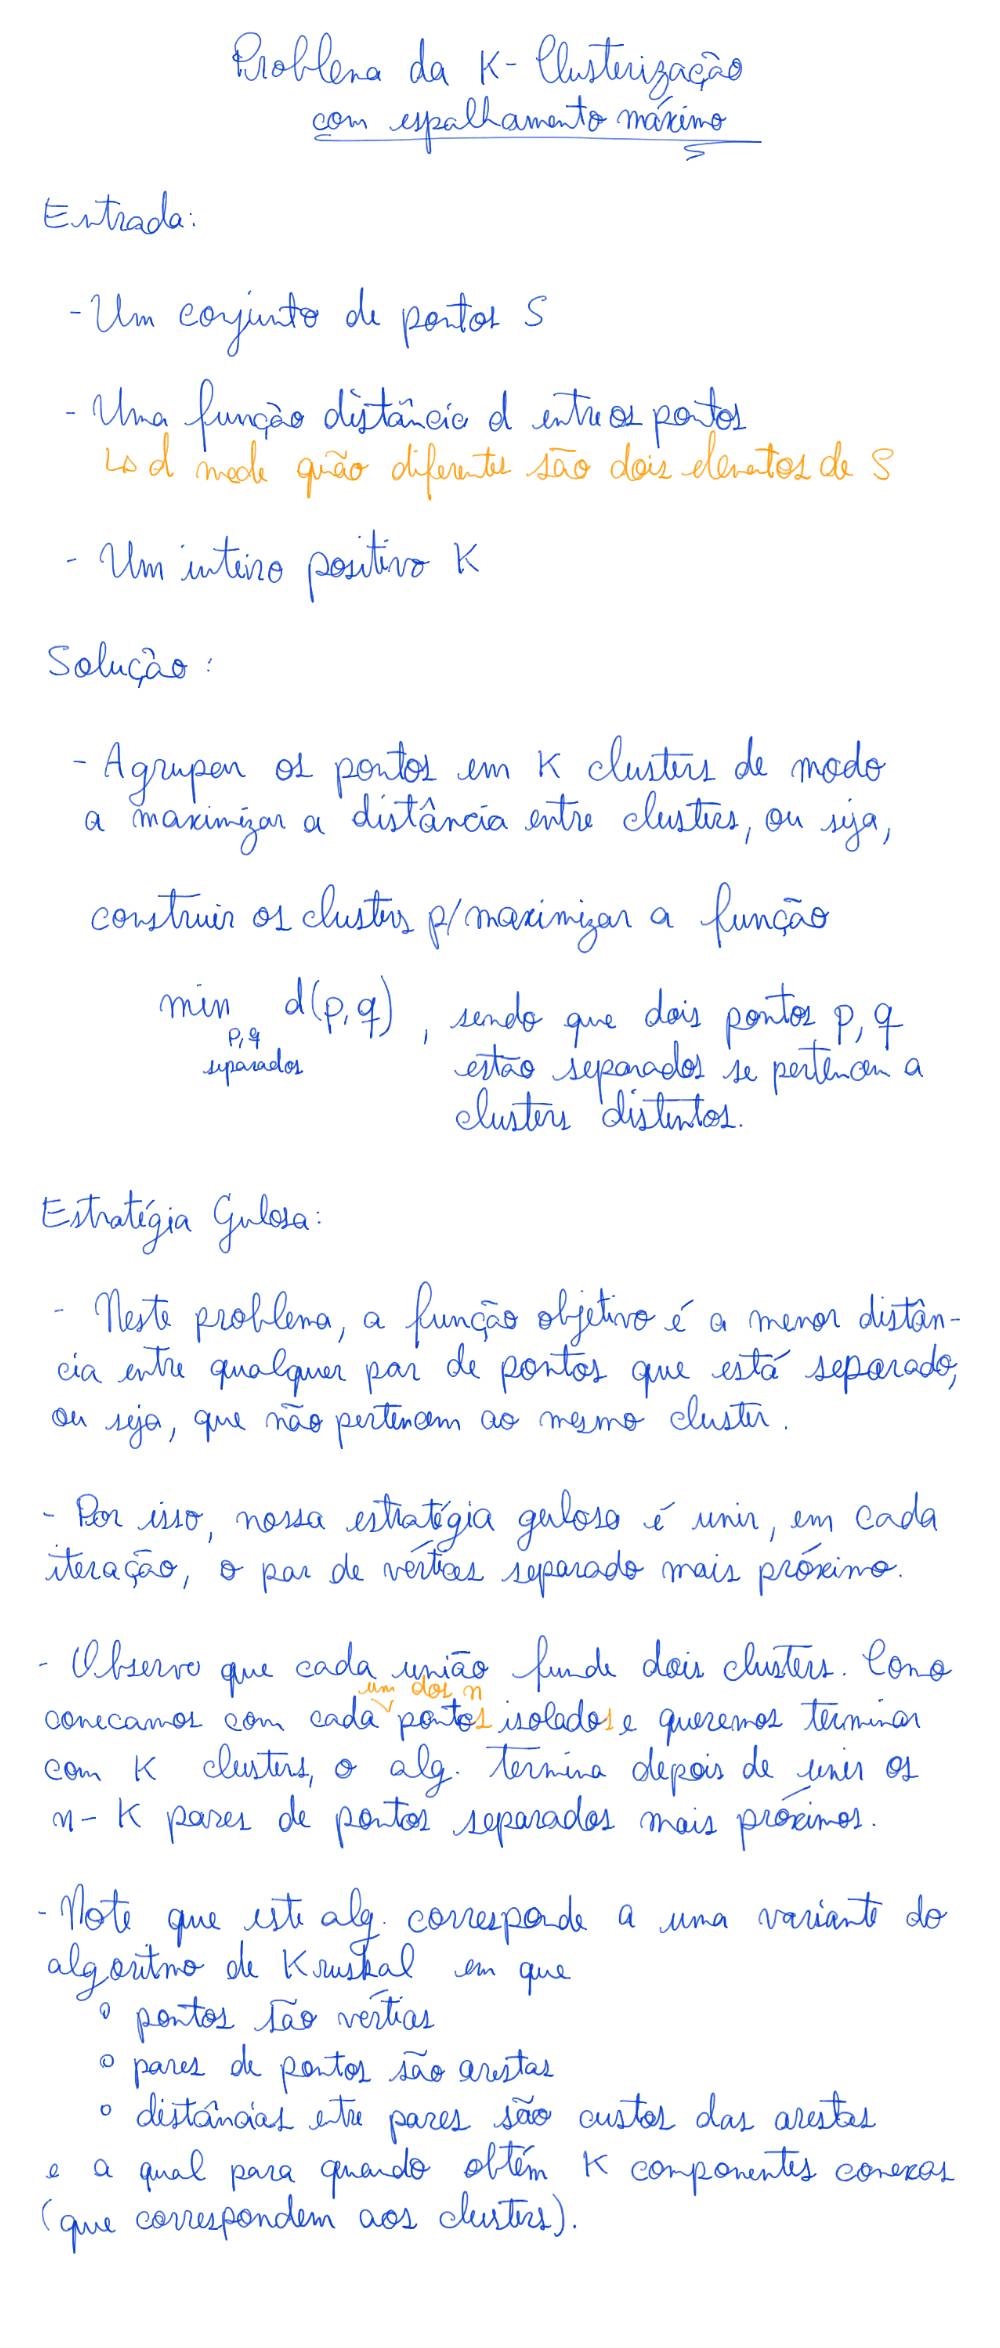 Problema da K-Clusterização
com espalhamento máximo
Entrada:
- Um conjunto de pontos S
- Uma função distância d entre os pontos
↳ d mede quão diferentes são dois elementos de S
- Um inteiro positivo K
Solução:
- Agrupar os pontos em K clusters de modo
a maximizar a distância entre clusters, ou seja,
construir os clusters p/ maximizar a função
min d(p,q) , sendo que dois pontos p, q
p,q
separados estão separados se pertencem a
clusters distintos.
Estratégia Gulosa:
- Neste problema, a função objetivo é a menor distân-
cia entre qualquer par de pontos que está separado,
ou seja, que não pertencem ao mesmo cluster.
- Por isso, nossa estratégia gulosa é unir, em cada
iteração, o par de vértices separado mais próximo.
- Observe que cada união funde dois clusters. Como
um dos n
começamos com cada pontos isolados e queremos terminar
com K clusters, o alg. termina depois de unir os
n - K pares de pontos separados mais próximos.
- Note que este alg. corresponde a uma variante do
algoritmo de Kruskal em que
° pontos são vértices
° pares de pontos são arestas
° distâncias entre pares são custos das arestas
e a qual para quando obtém K componentes conexas
(que correspondem aos clusters).